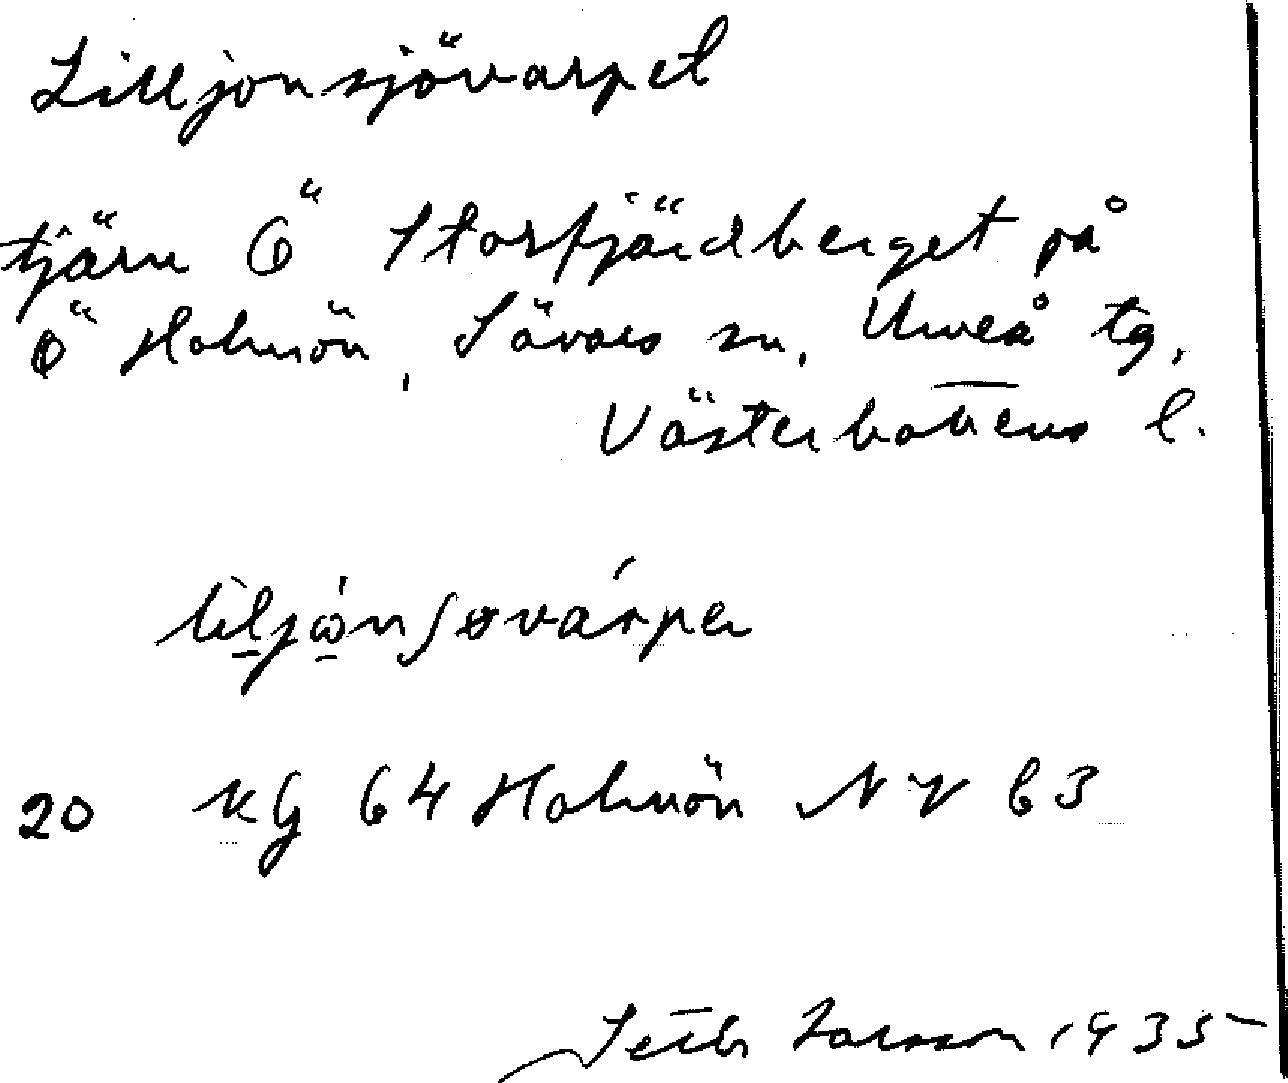 Lilljonsjövarpet
tjärn Ö Storfjärdberget på
Ö Holmön, Sävars sn, Umeå tg,
Västerbottens l.
liljǫ̀nʃøvárpə
20 KG 64 Holmön NV b3
Larsson 1935